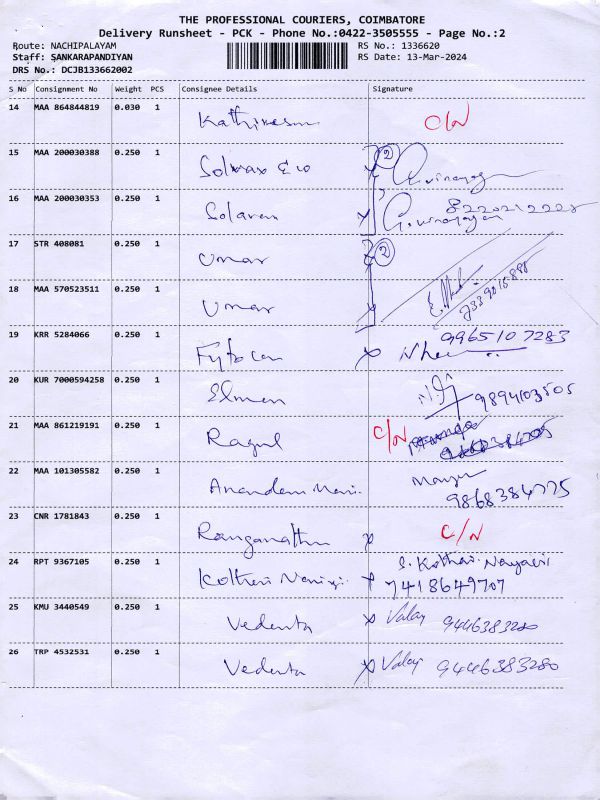 THE PROFESSIONAL COURIERS, COIMBATORE
Delivery Runsheet - PCK - Phone No.:0422-3505555 - Page No.:2
Route: NACHIPALAYAM RS No.: 1336620
Staff: SANKARAPANDIYAN RS Date: 13-Mar-2024
DRS No.: DCJB133662002
S No Consignment No Weight PCS Consignee Details Signature
14 MAA 864844819 0.030 1 C/N
15 MAA 200030388 0.250 1 2
16 MAA 200030353 0.250 1
17 STR 408081 0.250 1 Umar 2
18 MAA 570523511 0.250 1 Umar
19 KRR 5284066 0.250 1 x 9965107283
20 KUR 7000594258 0.250 1 Elmen 9894103505
21 MAA 861219191 0.250 1 Ragul C/N
22 MAA 101305582 0.250 1 9868384775
23 CNR 1781843 0.250 1 x C/N
24 RPT 9367105 0.250 1 7418649707
25 KMU 3440549 0.250 1 Vedenta x Valay 9446383280
26 TRP 4532531 0.250 1 Vedenta x Valay 9446383280